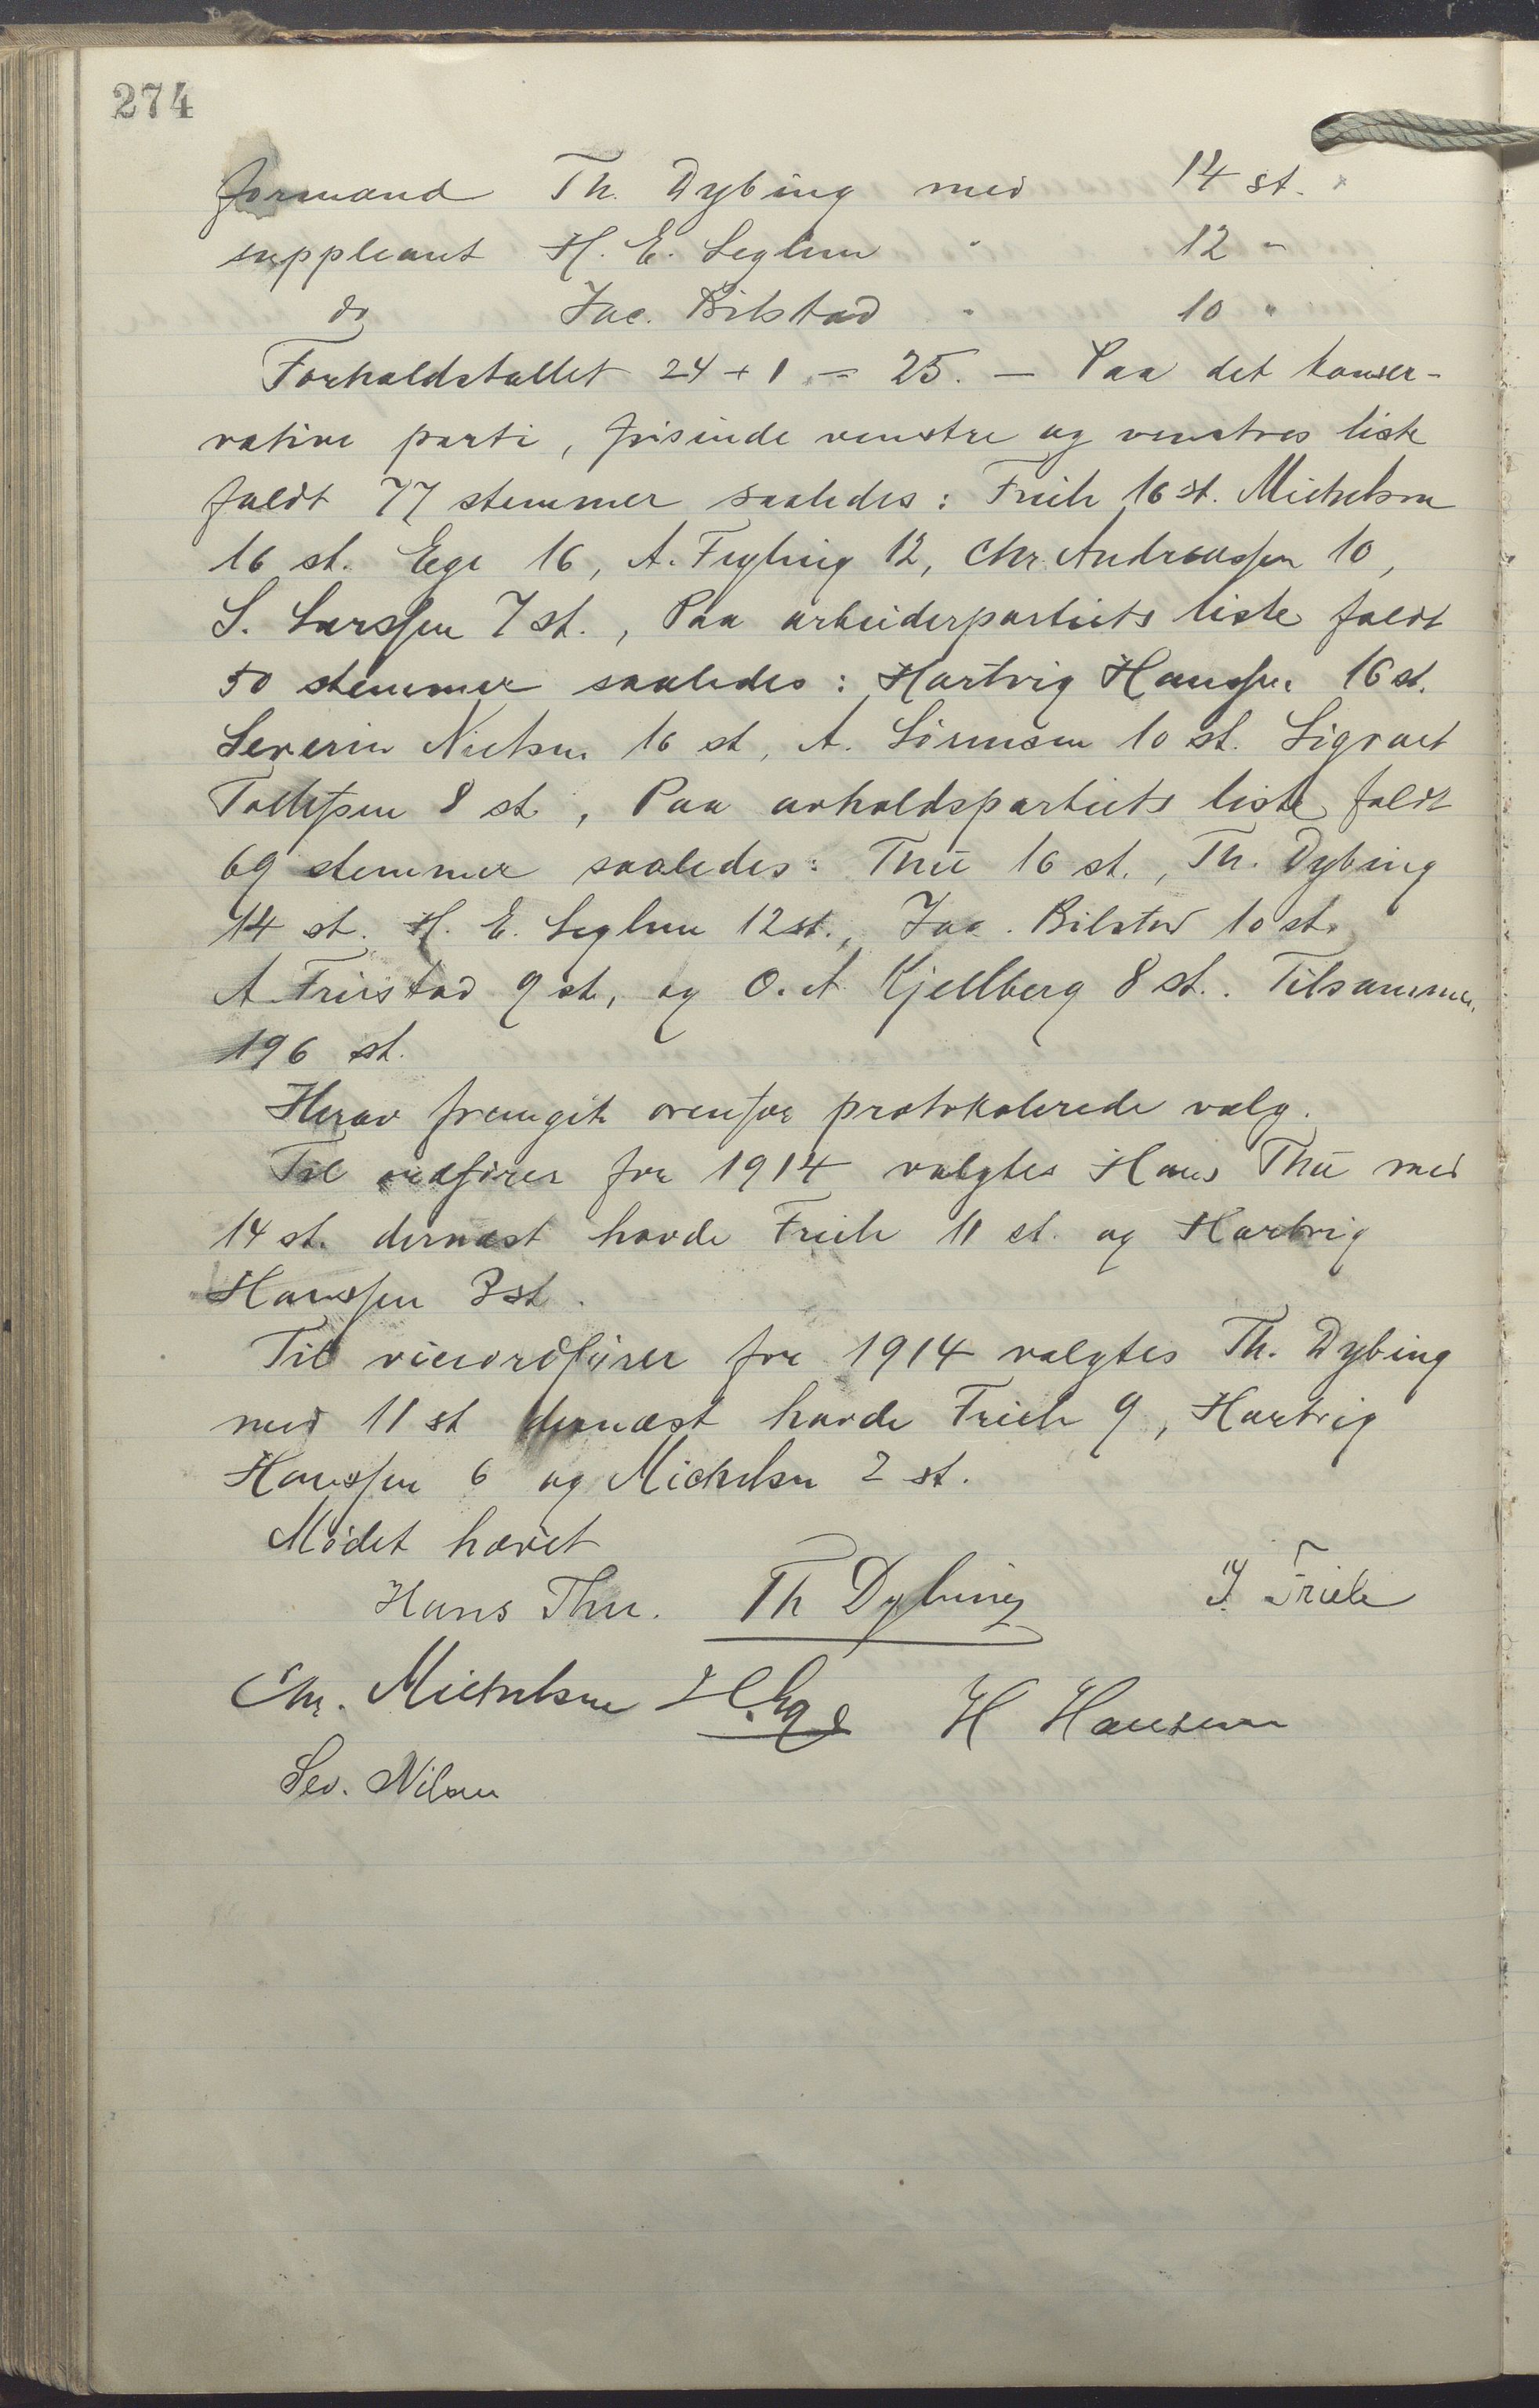 274
formand Th. Dybing med 14 st.
suppleant H. E. Seglem " 12 "
do Jac. Bilstad " 10 "
Forholdstallet 24 + 1 = 25. — Paa det konser-
vative parti, frisinde venstre og venstres liste
faldt 77 stemmer saaledes: Friele 16 st. Michelsen
16 st. Ege 16, A. Fugling 12, Chr. Andreassen 10,
S. Larssen 7 st., Paa arbeiderpartiets liste faldt
50 stemmer saaledes: Hartvig Hanssen 16 st.
Severin Nielsen 16 st, A. Sörensen 10 st. Sigvart
Tollefsen 8 st, Paa avholdspartiets liste faldt
69 stemmer saaledes: Thu 16 st., Th. Dybing
14 st. H. E. Seglem 12 st., Jac. Bilstad 10 st.
A Friestad 9 st, og O. A. Kjellberg 8 st. Tilsammen
196 st.
Herav fremgik ovenfor protokolerede valg.
Til ordförer for 1914 valgtes Hans Thu med
14 st. dernæst havde Friele 11 st. og Hartvig
Hanssen 3 st.
Til viceordförer for 1914 valgtes Th. Dybing
med 11 st dernæst havde Friele 9, Hartvig
Hanssen 6 og Michelsen 2 st.
Mödet hævet
Hans Thu. Th Dybing J. Friele
Chr. Michelsen H. Ege H Hansen
Sev. Nilsen